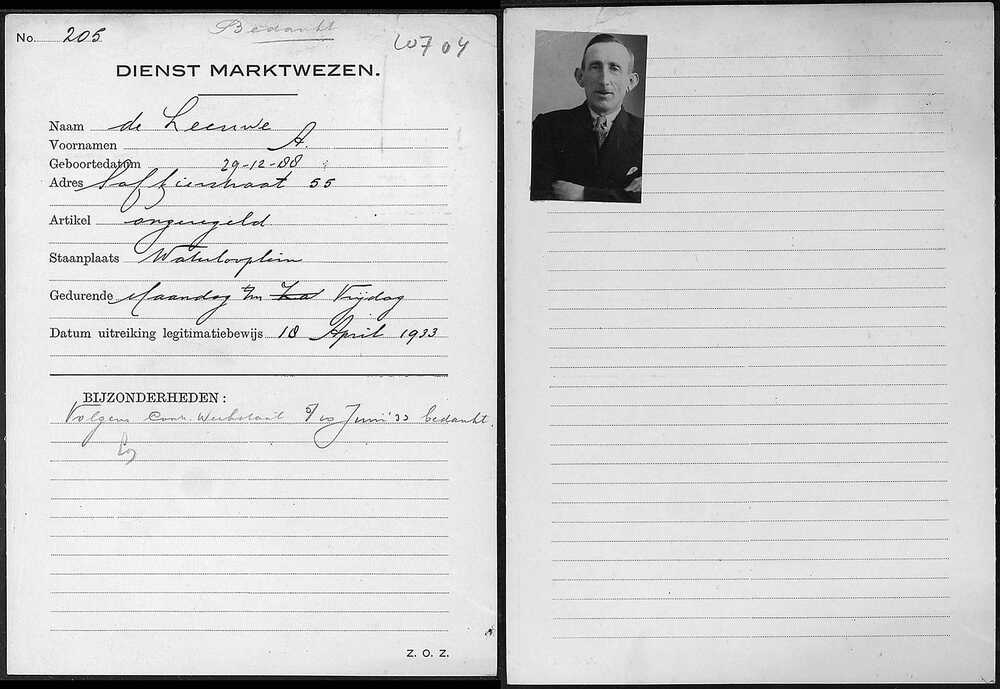 No. 205
Bedankt
W704
DIENST MARKTWEZEN.
Naam de Leeuwe
Voornamen A.
Geboortedatum 29-12-88
Adres 55
Artikel ongeregeld
Staanplaats Waterlooplein
Gedurende Maandag t/m Vrijdag
Datum uitreiking legitimatiebewijs 18 April 1933
BIJZONDERHEDEN:
Volgens Contr. Juni '33 bedankt.
Z. O. Z.